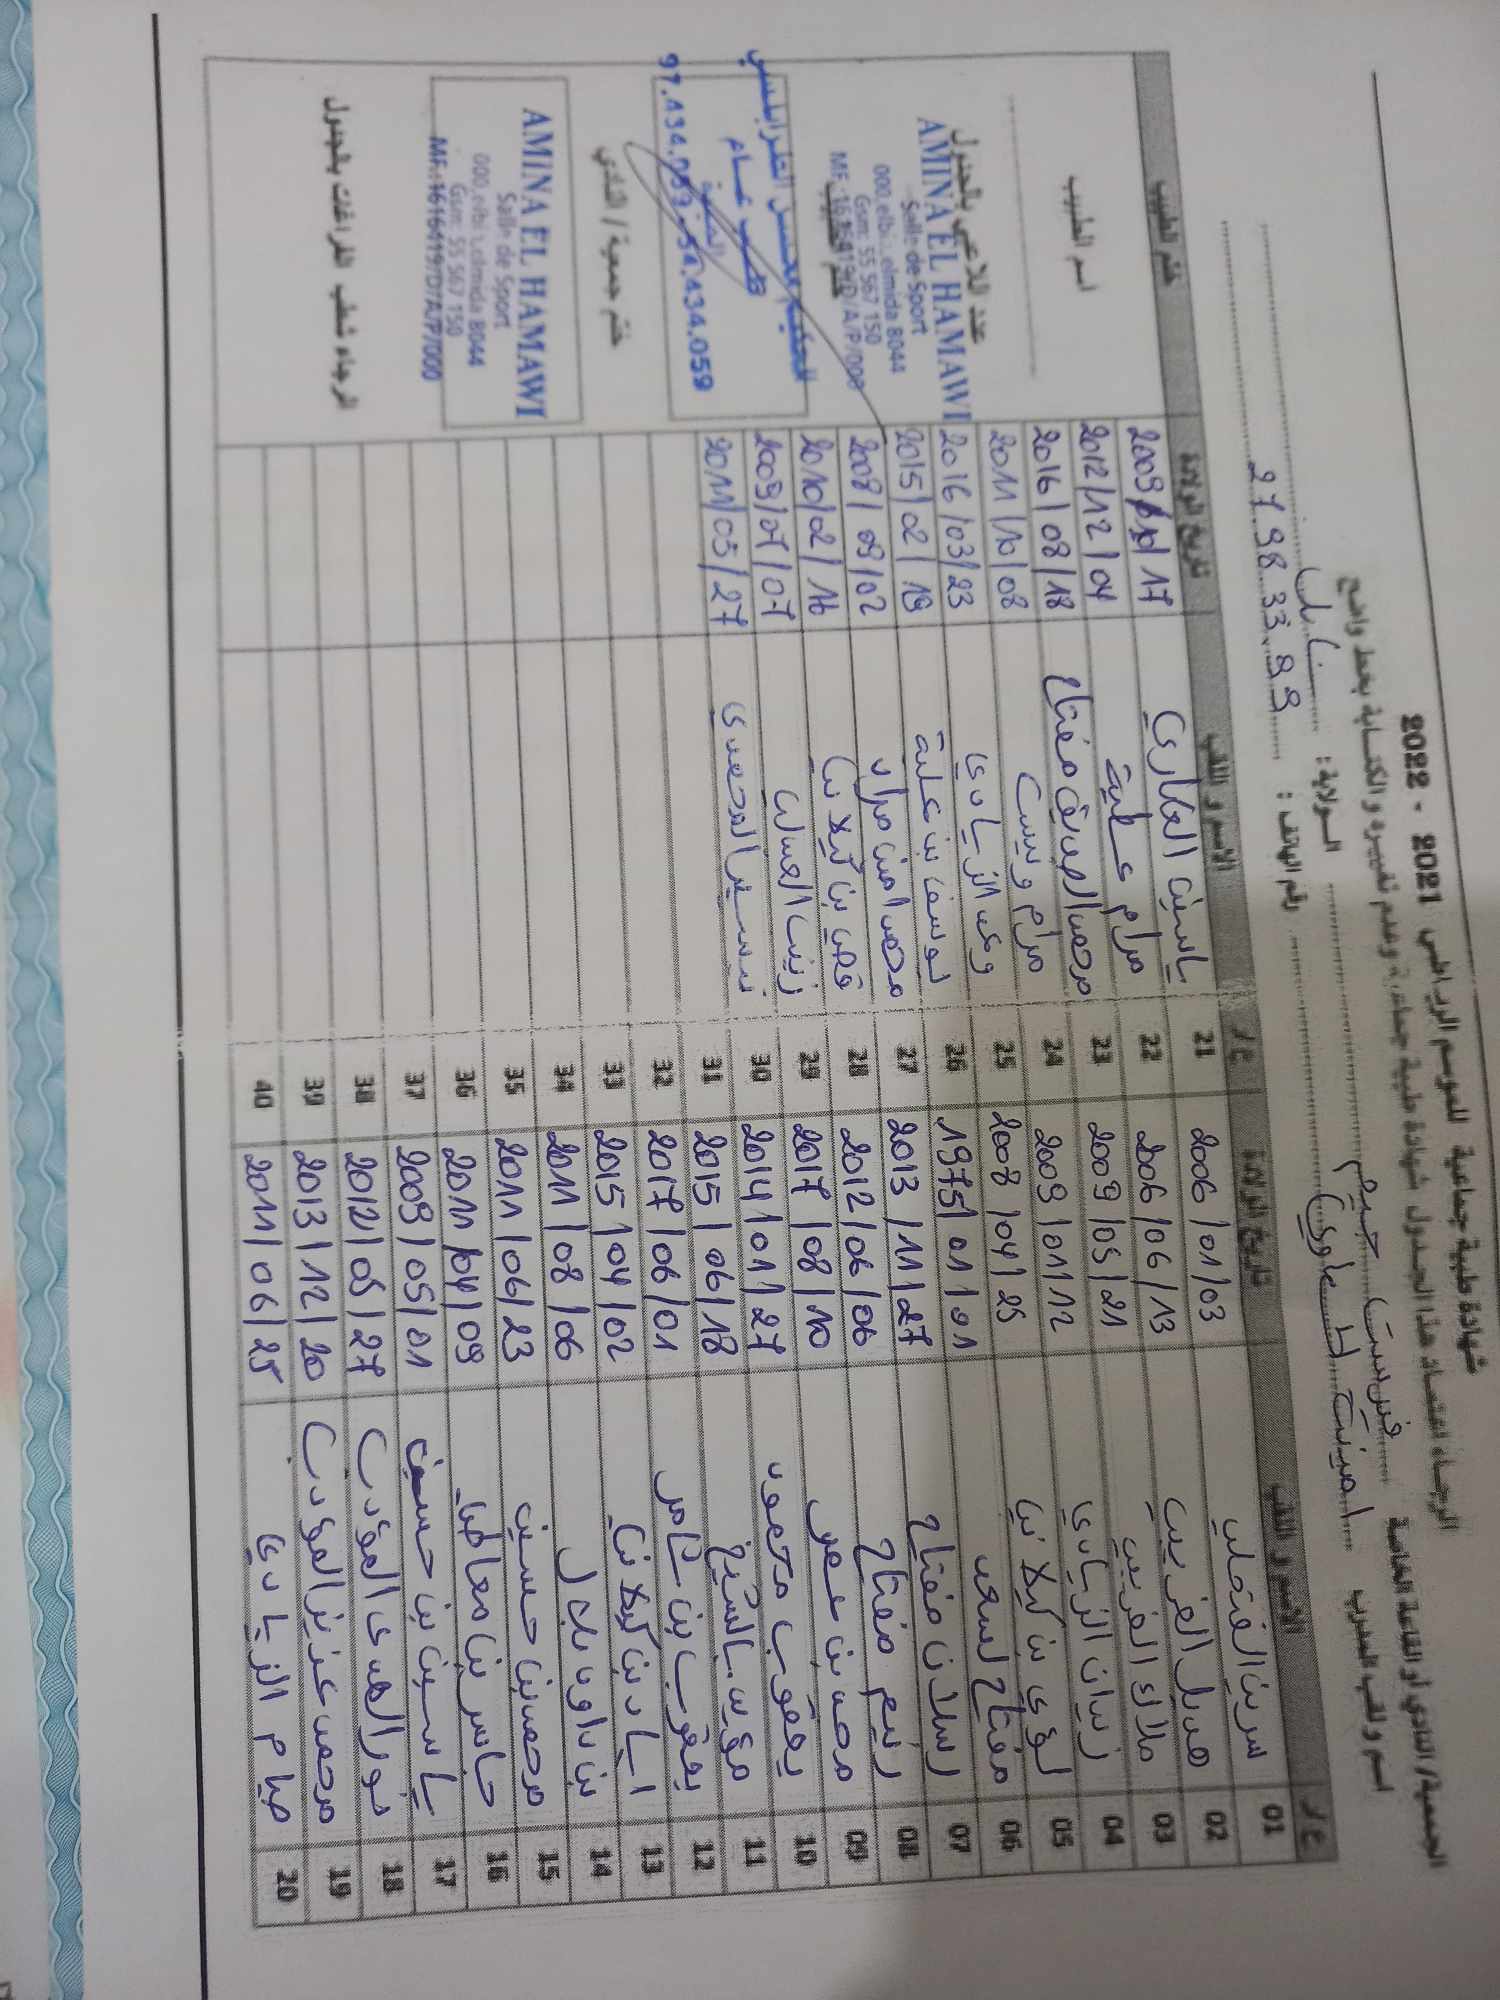 شهادة طبية جماعية للموسم الرياضي 2021 - 2022
الرجاء اعتماد هذا الجدول شهادة طبية جماعية وعدم تغييره والكتابة بخط واضح
الجمعية/ النادي أو القاعة الخاصة فيرست جيم الولاية : نابل
اسم ولقب المدرب امينة الحماوي رقم الهاتف : 27.98.33.99
ع/ر الاسم و اللقب تاريخ الولادة ع/ر الاسم و اللقب تاريخ الولادة ختم الطبيب
01 سرين الفتحلي 2006/01/03 21 ياسين العكاري 17
02 هديل الغريبي 2006/06/13 22 مرام عطية 2012/12/04
03 ملاك الغريبي 2009/05/21 23 محمد الصديق مفتاح 2016/08/18
04 زينان الزيادي 2009/01/12 24 مرام ونيس 2011/10/08
05 لؤي بن كيلاني 2008/04/25 25 وعد الزيادي 2016/03/23
06 مفتاح لسعد 1975/01/01 26 يوسف بن علية 2015/02/19
07 رسلان مفتاح 2013/11/27 27 محمد امين مراد 2008/09/02
08 رنيم مفتاح 2012/06/06 28 قصي بن كيلاني 2010/02/16
09 محمد بن عمر 2017/08/10 29 زينب العسل 2009/07/07
10 يعقوب 2014/01/27 30 نسرين 2011/05/27
11 مؤيد بالشيخ 2015/06/18 31
12 يعقوب بن عامر 2017/06/01 32
13 اياد بن كيلاني 2015/04/02 33
14 بن داود بلال 2011/08/06 34
15 محمد بن حسين 2011/06/23 35
16 جاسر بن معاطي 2011/04/09 36
17 ياسين بن حسين 2009/05/01 37
18 نور الهدى المؤدب 2012/05/27 38
19 محمد عزيز المؤدب 2013/12/20 39
20 صيام الزيادي 2011/06/25 40
اسم الطبيب
عدد اللاعبين بالجدول
AMINA EL HAMAWI
Salle de Sport
Gsm: 55 567 150
ختم الطبيب
الحكيم محسن الطرابلسي
طبيب عام
97.434.059-54.434.059
ختم جمعية / النادي
AMINA EL HAMAWI
Salle de Sport
Gsm: 55 567 150
MF.:1616419/D/A/P/000
الرجاء شطب الفراغات بالجدول